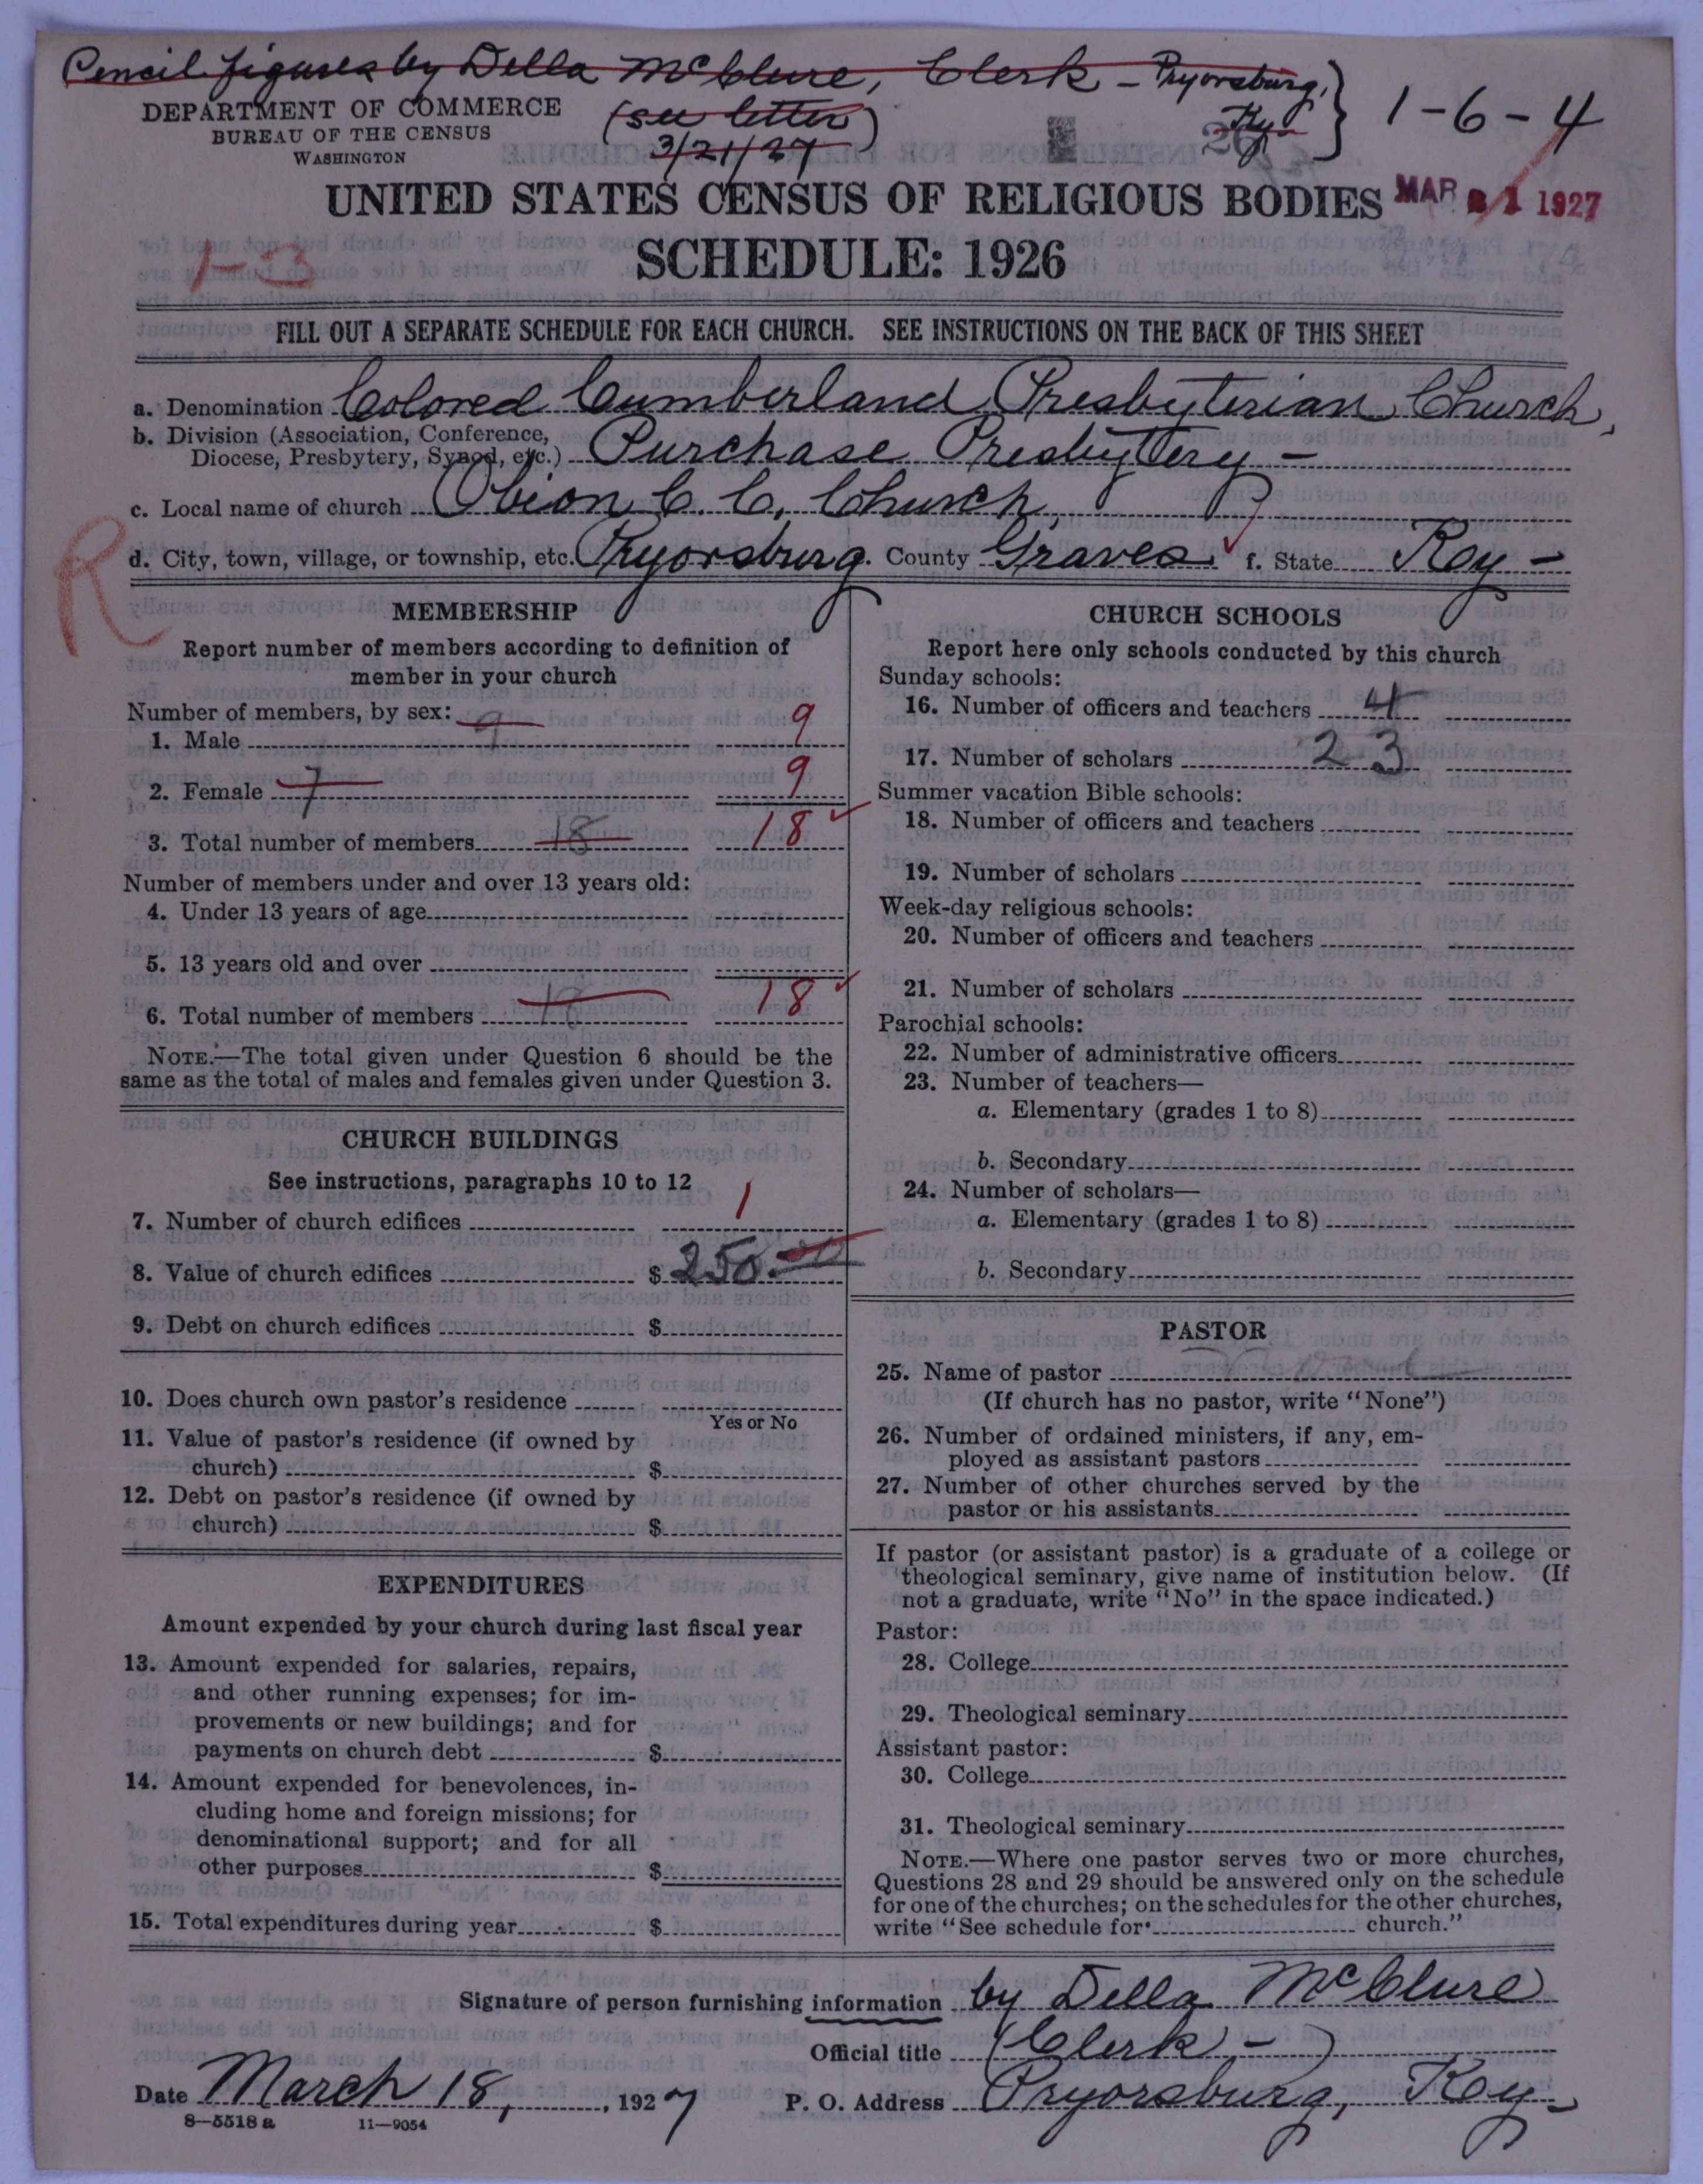 Pencil figures by Della McClure, Clerk - Pryorsburg, Ky. } 1-6-4
DEPARTMENT OF COMMERCE
BUREAU OF THE CENSUS
WASHINGTON
(see letter)
3/21/27
UNITED STATES CENSUS OF RELIGIOUS BODIES
MAR 21 1927
1-3
SCHEDULE: 1926
FILL OUT A SEPARATE SCHEDULE FOR EACH CHURCH. SEE INSTRUCTIONS ON THE BACK OF THIS SHEET
a. Denomination Colored Cumberland Presbyterian Church,
b. Division (Association, Conference, Diocese, Presbytery, Synod, etc.) Purchase Presbytery -
c. Local name of church Obion C. C. Church,
R
d. City, town, village, or township, etc. Pryorsburg. County Graves. f. State Key -
MEMBERSHIP
Report number of members according to definition of
member in your church
Number of members, by sex: 9
1. Male 9
2. Female 7 9
3. Total number of members 18 18
Number of members under and over 13 years old:
4. Under 13 years of age
5. 13 years old and over
6. Total number of members 18 18
NOTE.—The total given under Question 6 should be the
same as the total of males and females given under Question 3.
CHURCH BUILDINGS
See instructions, paragraphs 10 to 12
7. Number of church edifices 1
8. Value of church edifices $ 250.00
9. Debt on church edifices $
10. Does church own pastor's residence
Yes or No
11. Value of pastor's residence (if owned by
church) $
12. Debt on pastor's residence (if owned by
church) $
EXPENDITURES
Amount expended by your church during last fiscal year
13. Amount expended for salaries, repairs,
and other running expenses; for im-
provements or new buildings; and for
payments on church debt $
14. Amount expended for benevolences, in-
cluding home and foreign missions; for
denominational support; and for all
other purposes $
15. Total expenditures during year $
CHURCH SCHOOLS
Report here only schools conducted by this church
Sunday schools:
16. Number of officers and teachers 4
17. Number of scholars 23
Summer vacation Bible schools:
18. Number of officers and teachers
19. Number of scholars
Week-day religious schools:
20. Number of officers and teachers
21. Number of scholars
Parochial schools:
22. Number of administrative officers
23. Number of teachers—
a. Elementary (grades 1 to 8)
b. Secondary
24. Number of scholars—
a. Elementary (grades 1 to 8)
b. Secondary
PASTOR
25. Name of pastor
(If church has no pastor, write "None")
26. Number of ordained ministers, if any, em-
ployed as assistant pastors
27. Number of other churches served by the
pastor or his assistants
If pastor (or assistant pastor) is a graduate of a college or
theological seminary, give name of institution below. (If
not a graduate, write "No" in the space indicated.)
Pastor:
28. College
29. Theological seminary
Assistant pastor:
30. College
31. Theological seminary
NOTE.—Where one pastor serves two or more churches,
Questions 28 and 29 should be answered only on the schedule
for one of the churches; on the schedules for the other churches,
write "See schedule for church."
Signature of person furnishing information by Della McClure
Official title (Clerk -)
Date March 18, 1927 P. O. Address Pryorsburg, Key -
8-5518 a 11-9054